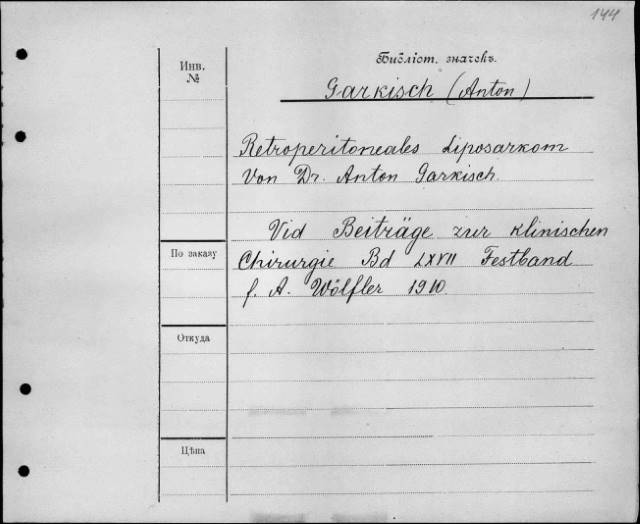 144
Библіот. значекъ.
Инв.
№
Garkisch (Anton)
Retroperitoneales Liposarkom
Von Dr. Anton Garkisch.
Vid Beiträge zur klinischen
По заказу
Chirurgie Bd LXVII Festband
f. A. Wölfler 1910
Откуда
Цѣна